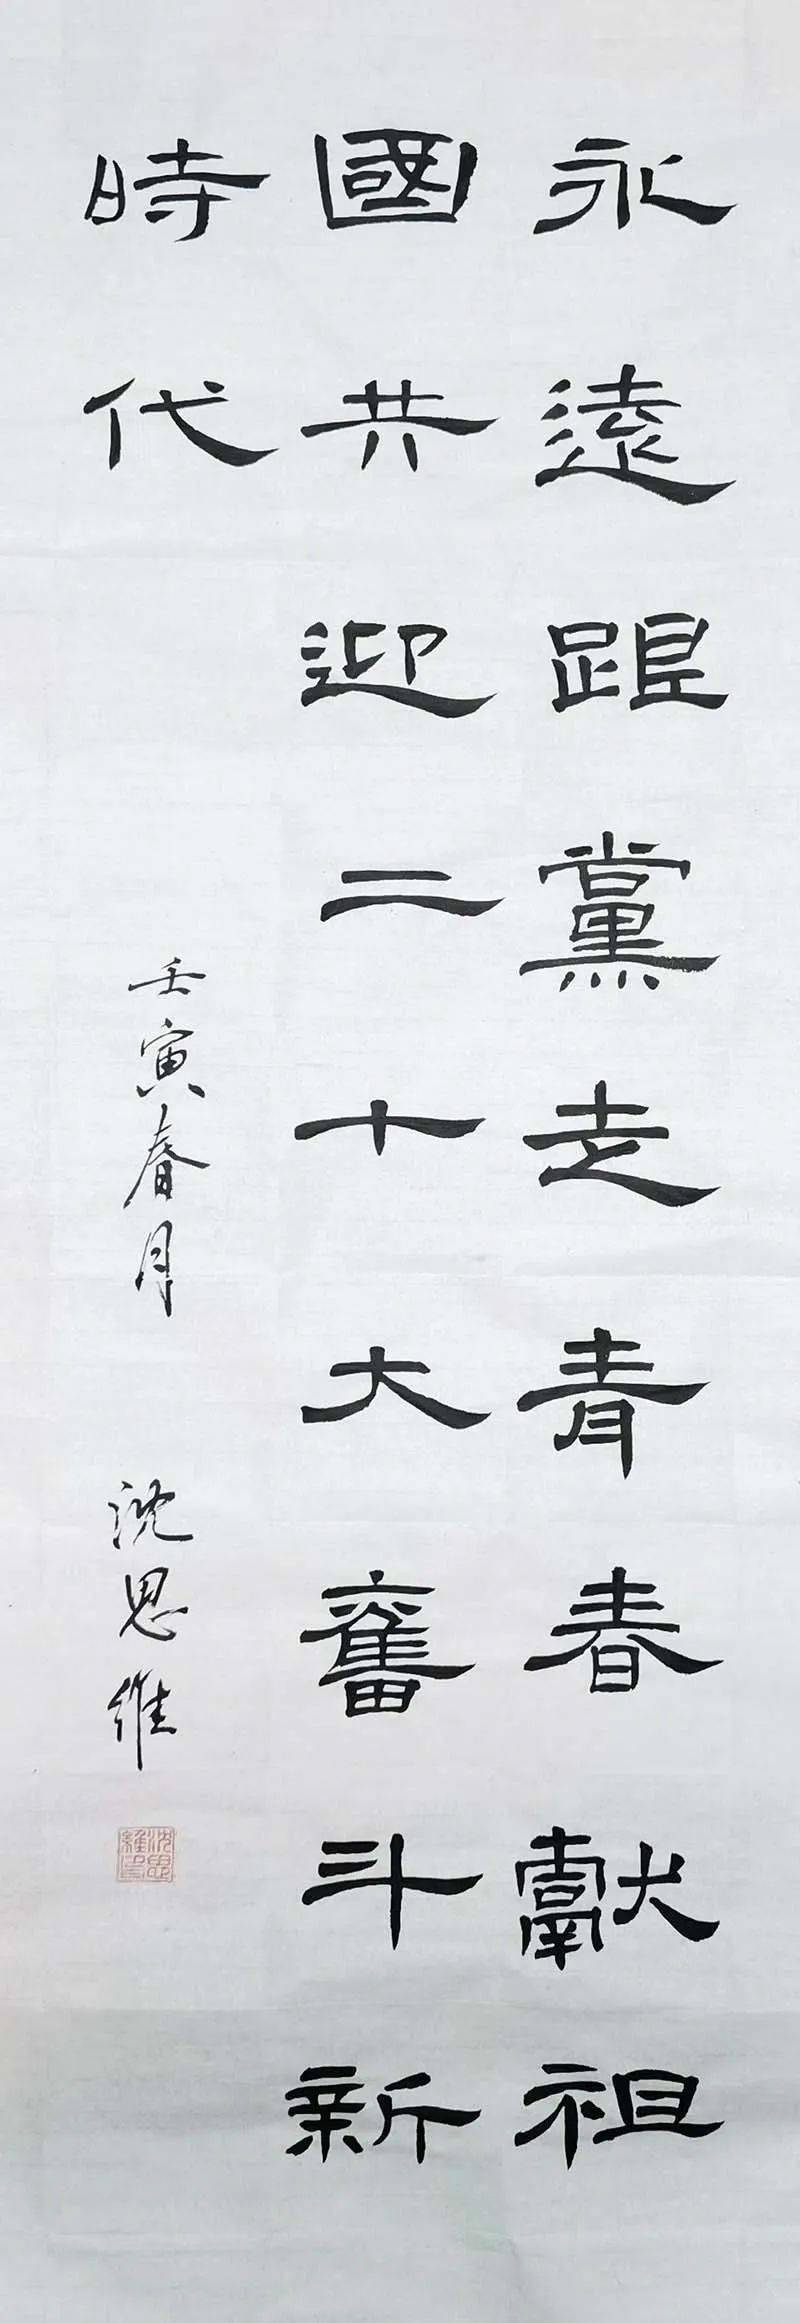 永遠跟黨走青春獻祖
國共迎二十大奮斗新
時代
壬寅春月
沈思維
沈思維印